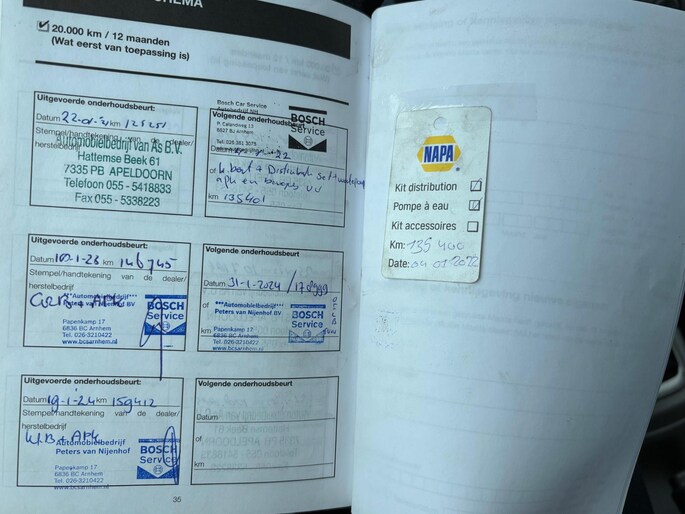 HEMA
20.000 km / 12 maanden
(Wat eerst van toepassing is)
Uitgevoerde onderhoudsbeurt:
Datum 22-01-21 km 125251
Stempel/handtekening van de dealer/
herstelbedrijf
Automobielbedrijf van As B.V.
Hattemse Beek 61
7335 PB APELDOORN
Telefoon 055 - 5418833
Fax 055 - 5338223
Bosch Car Service
BOSCH
Service
Volgende onderhoudsbeurt
6827 BJ Arnhem
Tel: 026 361 3075
Datum
of
km 135401
Uitgevoerde onderhoudsbeurt:
Datum 10-1-23 km 146745
Stempel/handtekening van de dealer/
herstelbedrijf
+ APK
***Automobielbedrijf***
Peters van Nijenhof BV
Papenkamp 17
6836 BC Arnhem
Tel. 026-3210422
www.bcsarnhem.nl
BOSCH
Service
Volgende onderhoudsbeurt
Datum 31-1-2024
of
***Automobielbedrijf***
Peters van Nijenhof BV
km
Papenkamp 17
6836 BC Arnhem
Tel. 026-3210422
www.bcsarnhem.nl
BOSCH
Service
Uitgevoerde onderhoudsbeurt:
Datum 19-1-24 km 159412
Stempel/handtekening van de dealer/
herstelbedrijf
+ APK
Automobielbedrijf
Peters van Nijenhof
Papenkamp 17
6836 BC Arnhem
Tel. 026-3210422
www.bcsarnhem.nl
BOSCH
Service
Volgende onderhoudsbeurt
Datum
of
km
35
NAPA
Kit distribution
Pompe à eau
Kit accessoires
Km: 135 400
Date: 04 01 2022